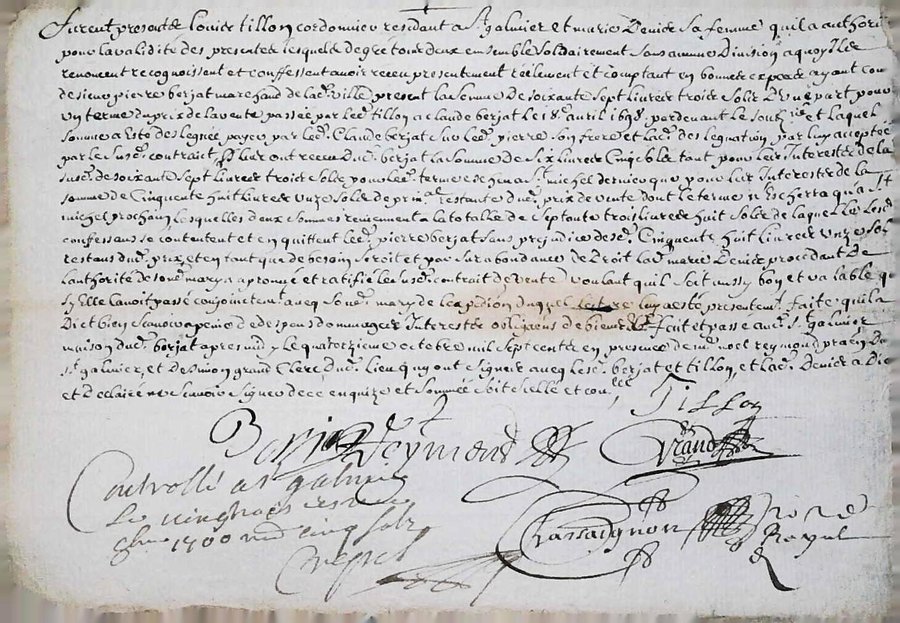 furent presents Louier tillon cordonnier residant a St galmier et marie Denier sa femme quil a authori
pour la validité des presentes lesquels de gre tour deux ensemble solidairement sans aucune Division a quoy Ilz
renoncent recognoissent et confessent avoir receu presentement reellement et comptant en bonnes especes ayant cou
de sieur pierre berjat marchand de lad. ville present la somme De soixante sept livres trois solz D'une part pour
un terme du prix de la vente passée par led. tillon a claude berjat le 18e avril 1698 et laquel
somme a esté desleguée payer par led. Claude berjat au led. pierre son frere et lad. deslegation par luy acceptée
par le susd. contrait Ilz ont receu dud. berjat la somme de six livres Cinq solz tant pour leur Interestz de la
susd. de soixante sept livres trois solz pour led. terme St michel dernier que pour lesd. Interestz de la
somme de Cinquante huit livres unze solz de prin.al restante dud. prix de vente dont le terme n'escherra qu'a St
michel prochain lesquelles deux sommes reviennent a la totalle de septante trois livres huit solz de laquelle Ilz lesd.
confessans se contentent et en quittent led. pierre berjat sans prejudice desd. Cinquante huit livres unze solz
restans dud. prix, et en tant que de besoin seroit et par surabondance de Droit lad. marie Denier procedant De
l'authorité de sond. mary a aprouvé et ratifié le susd. contrait de vente voulant qu'il soit aussy bon et valable que
sy Elle l'avoit passé conjoinctem.t avec sond. mary de l'expedition duquel lecture luy a esté presentem.t faite qu'ell a
Dict bien scavoir a peine de despens dommages Interestz obligeans de biens fait et passe aud. St galmier
maison dud. berjat apres midy le quatorzieme octobre mil sept centz en presence de me noel reymond praen Du
St galmier, et de simon grand Clerc dud. lieu quy ont signés avec lesd. berjat et tillon, et lad. Denier a Dit
et declairé ne scavoir signer de ce enquize et sommée soit scellé et con.llé
Tillon
Berjat Reymond Grand
Controllé a St galmier
Le vingt
9bre 1700 cinq solz
Chassaignon No.re Royal